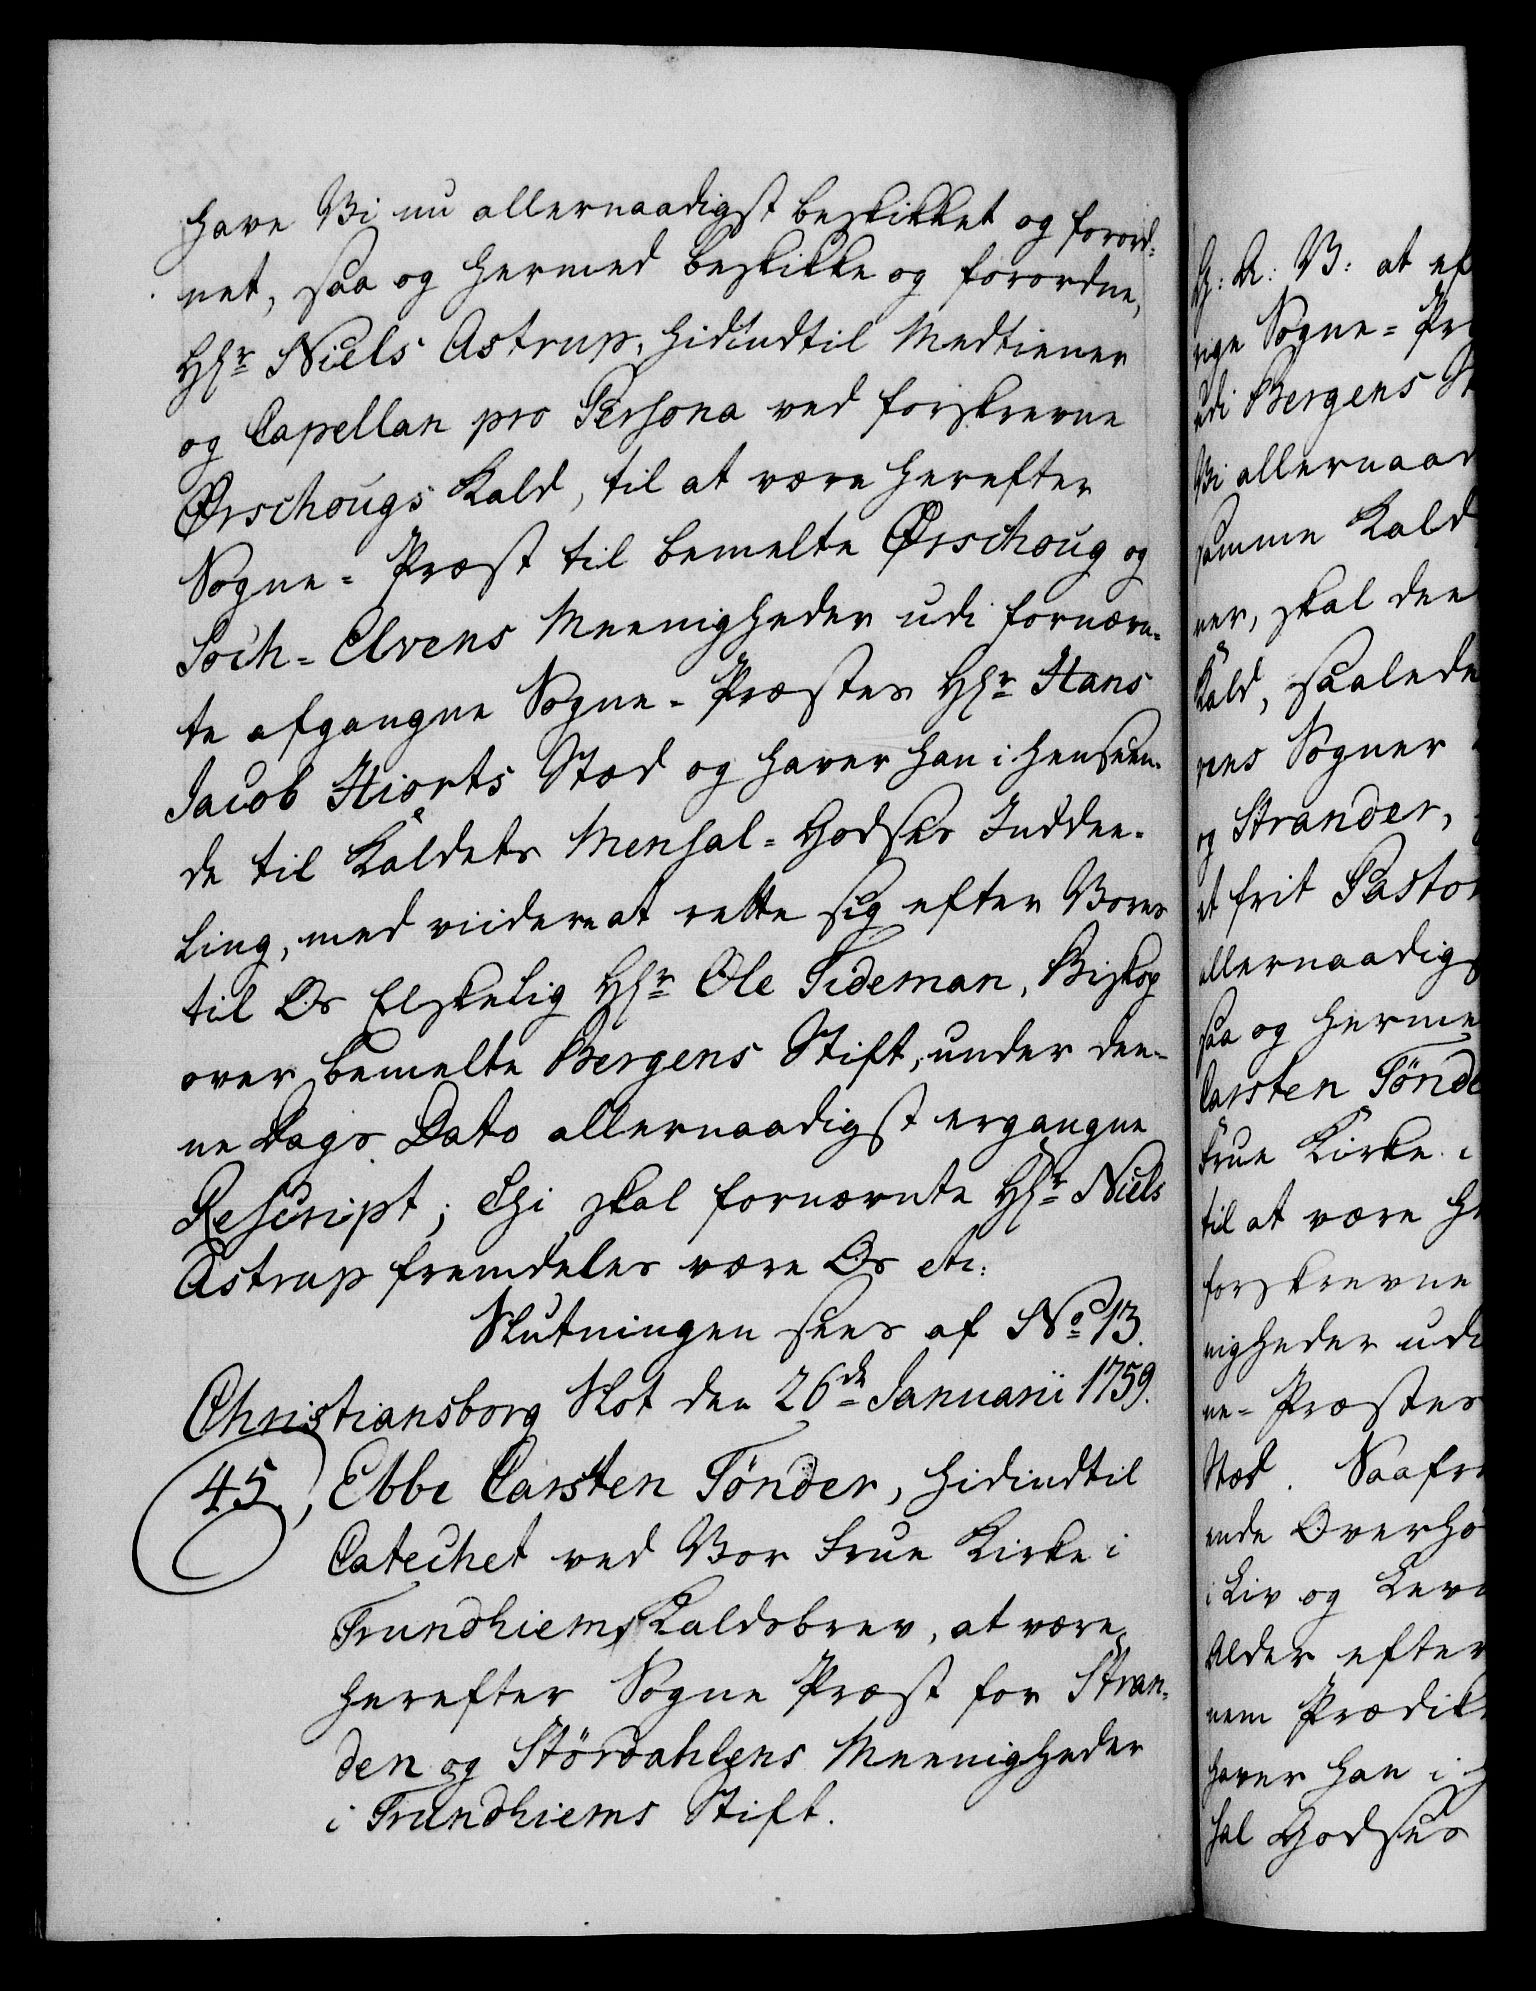 have Vi nu allernaadigst beskikket og forord-
net, saa og hermed beskikke og forordne,
Hr. Niels Astrup, hidindtil Medtiener
og Capellan pro Persona ved forskrevne
Ørschougs Kald, til at være herefter
Sogne-Præst til bemelte Ørschoug og
Soch-Elvens Meenigheder udi fornævn-
te afgangne Sogne-Præstes Hr. Hans
Jacob Hiorts Stæd og haver han i henseen-
de til Kaldets Mensal-Godses Inddee-
ling, med viidere at rette sig efter Vores
til Os Elskelig Hr. Ole Tideman, Biskop
over bemelte Bergens Stift, under den-
ne Dags Dato allernaadigst ergangne
Rescript; Thi skal fornævnte Hr. Niels
Astrup fremdeles være Os etc:
Slutningen sees af No. 13.
Christiansborg Slot den 26de Januarii 1759.
45, Ebbe Carsten Tönder, hidindtil
Catechet ved Vor Frue Kirke i
Trundhiems Kaldsbrev, at være
herefter Sogne Præst for Stran-
den og Stördahlens Meenigheder
i Trundhiems Stift.
G: A: V: at ef
rige Sogne-Pr
udi Bergens St
Vi allernaad
samme Kald
ner, skal den
Kald, saalede
rens Sogner
og Strander,
et frit Pasto
allernaadigs
saa og herme
Carsten Tönde
Frue Kirke i
til at være he
forskrevne
nigheder udi
ne-Præstes
Stæd. Saafr
ende Overhø
i Liv og Lev
Alder efter
nem Prædik
haver han i H
sal Godses